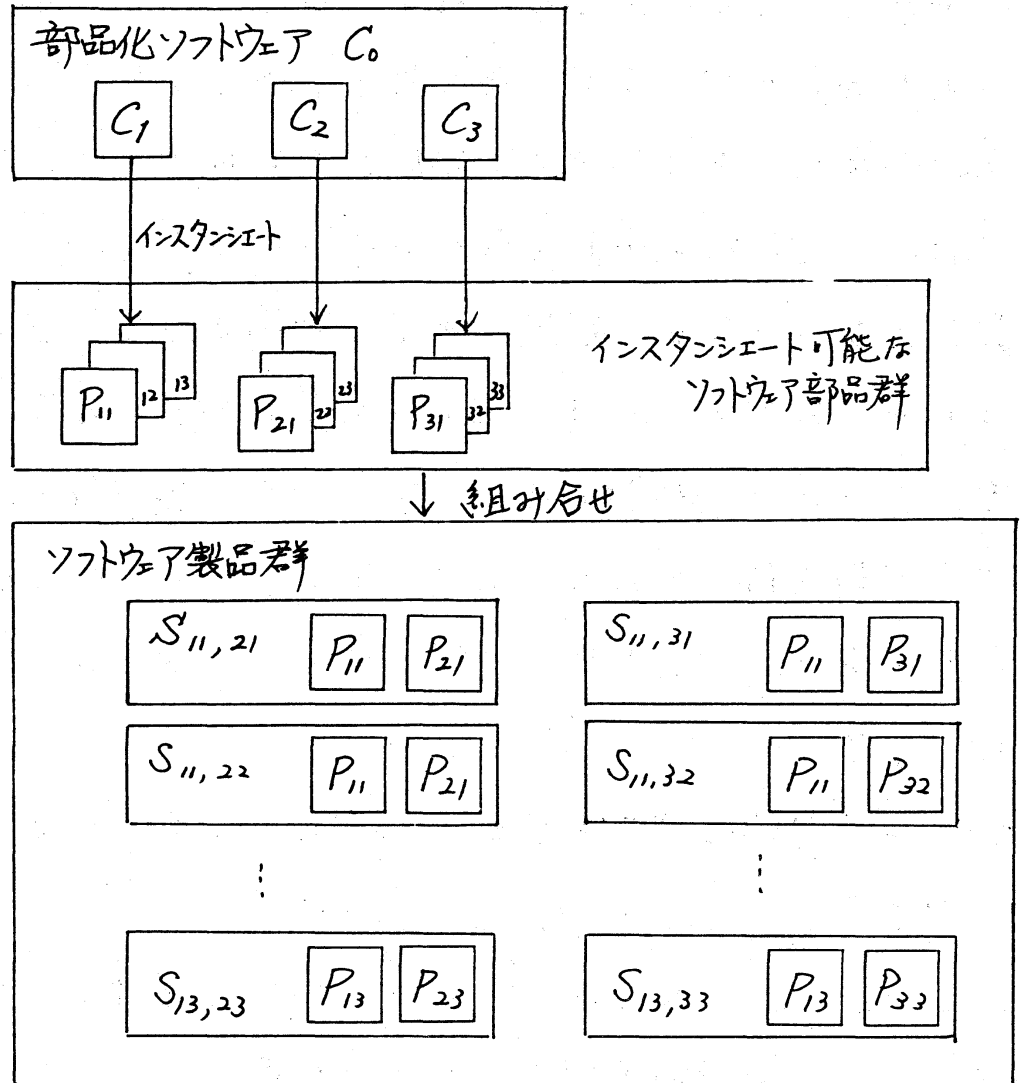 部品化ソフトウェア C₀
C₁ C₂ C₃
インスタンシエート
P₁₁ 12 13 P₂₁ 22 23 P₃₁ 32 33
インスタンシエート可能な
ソフトウェア部品群
↓ 組み合せ
ソフトウェア製品群
S₁₁,₂₁ P₁₁ P₂₁
S₁₁,₃₁ P₁₁ P₃₁
S₁₁,₂₂ P₁₁ P₂₁
S₁₁,₃₂ P₁₁ P₃₂
⋮ ⋮
S₁₃,₂₃ P₁₃ P₂₃
S₁₃,₃₃ P₁₃ P₃₃